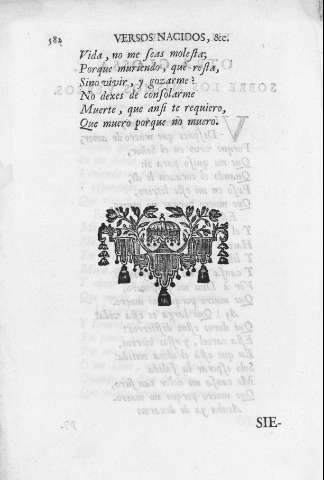 582 VERSOS NACIDOS, &c.
Vida, no me seas molesta;
Porque muriendo, què resta,
Sino vivir, y gozarme?
No dexes de consolarme
Muerte, que ansi te requiero,
Que muero porque no muero.
SIE-